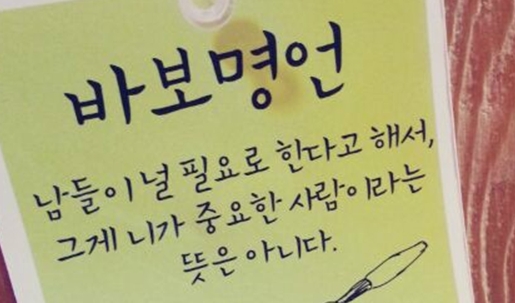 바보명언
남들이 널 필요로 한다고 해서,
그게 니가 중요한 사람이라는
뜻은 아니다.